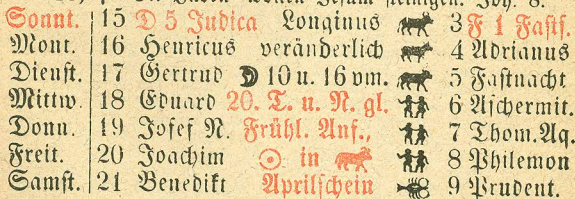 Juden wollen Jesum steinigen. Joh. 8.
Sonnt. 15 D 5 Judica Longinus 3 F 1 Fasts.
Mont. 16 Henricus veränderlich 4 Adrianus
Dienst. 17 Gertrud ☽ 10 u. 16 vm. 5 Fastnacht
Mittw. 18 Eduard 20. T. u. N. gl. 6 Aschermit.
Donn. 19 Josef N. Frühl. Anf., 7 Thom. Aq.
Freit. 20 Joachim ☉ in ♉ 8 Philemon
Samst. 21 Benedikt Aprilschein 9 Prudent.